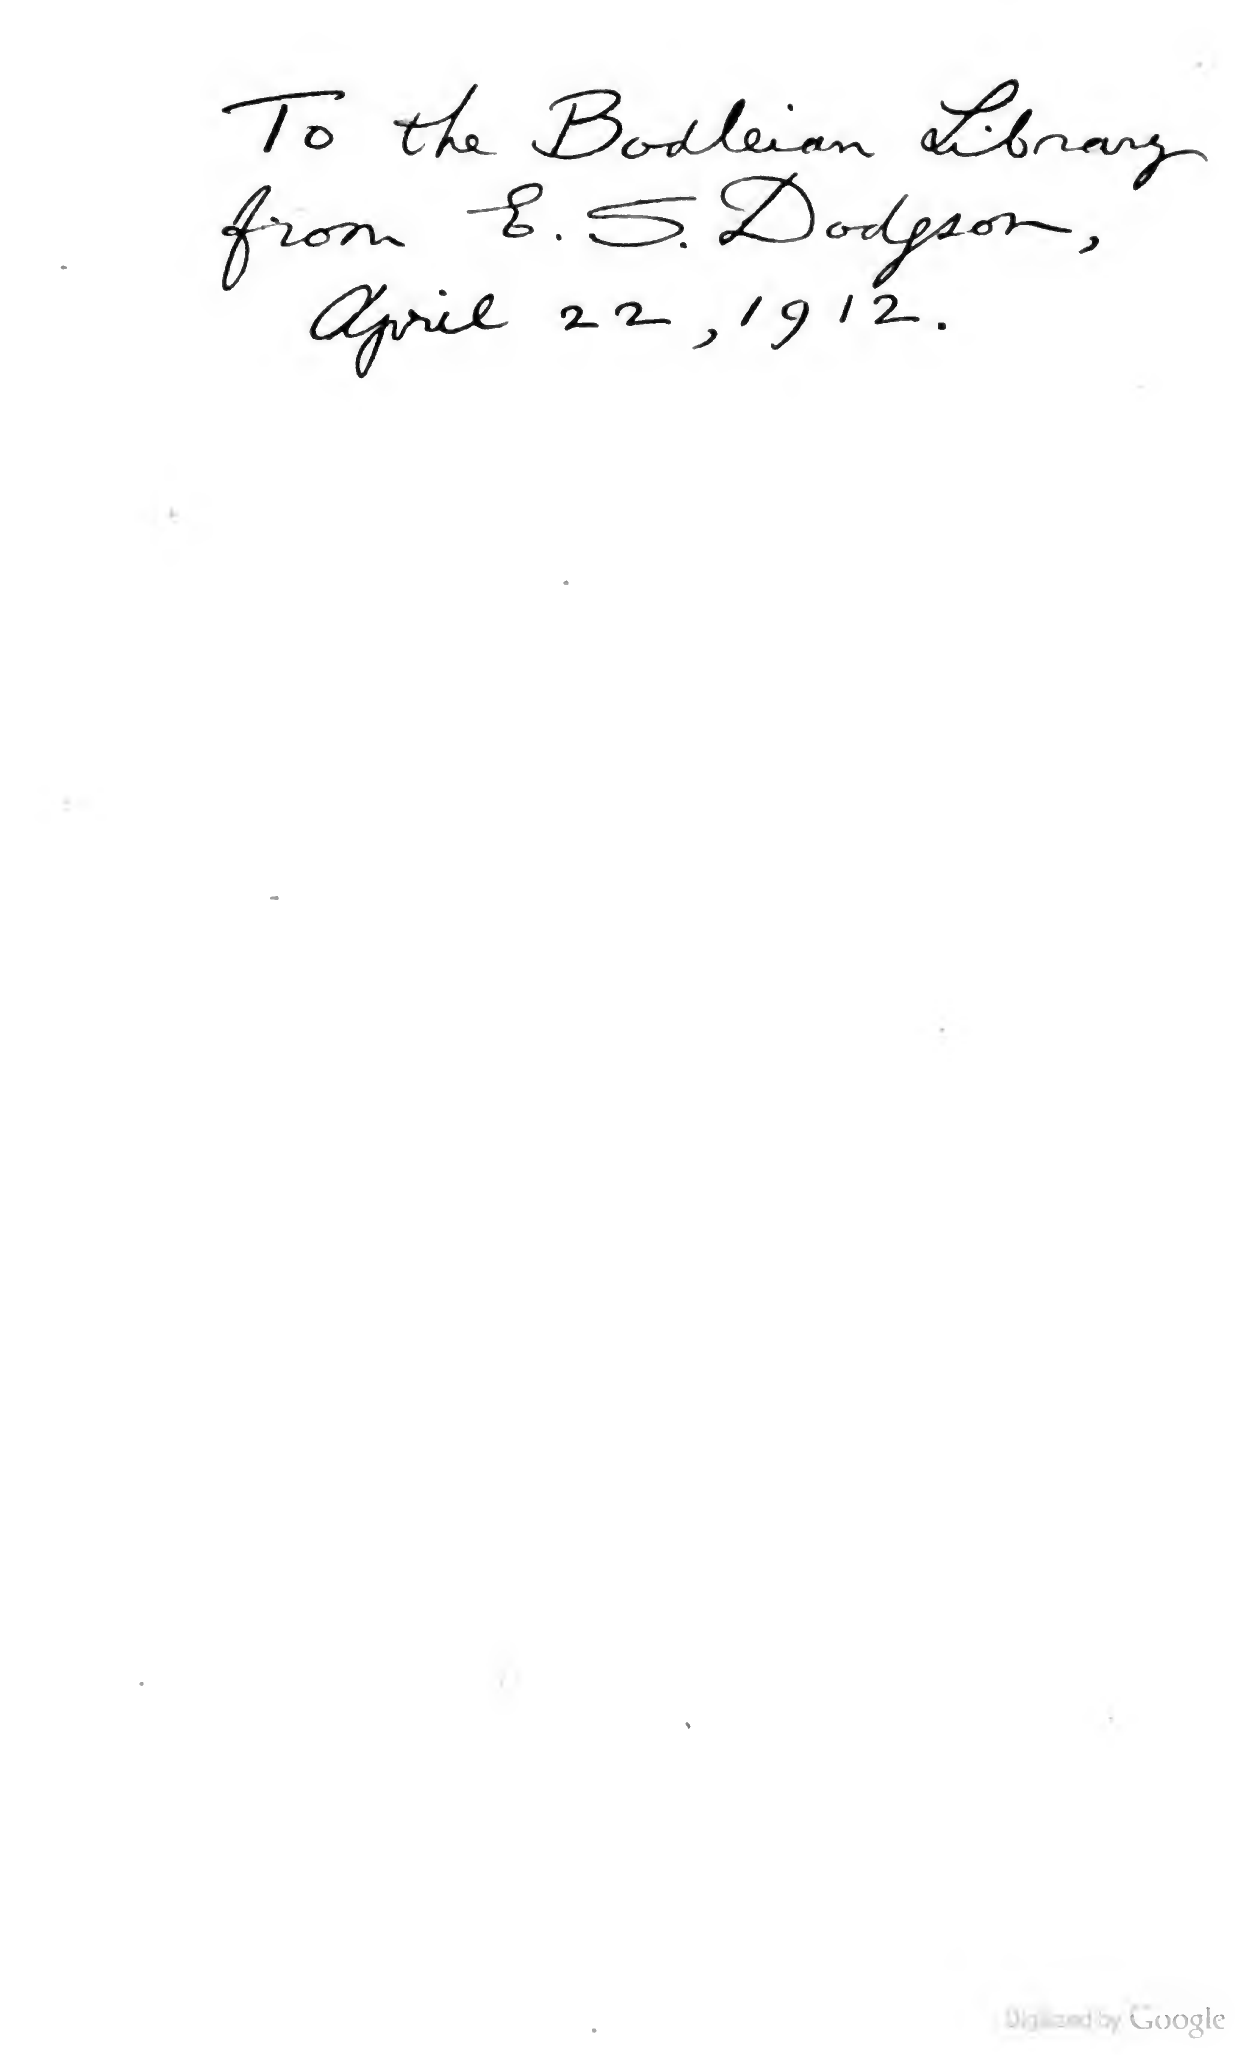 To the Bodleian Library
from E. S. Dodgson,
April 22, 1912.
Digitized by Google